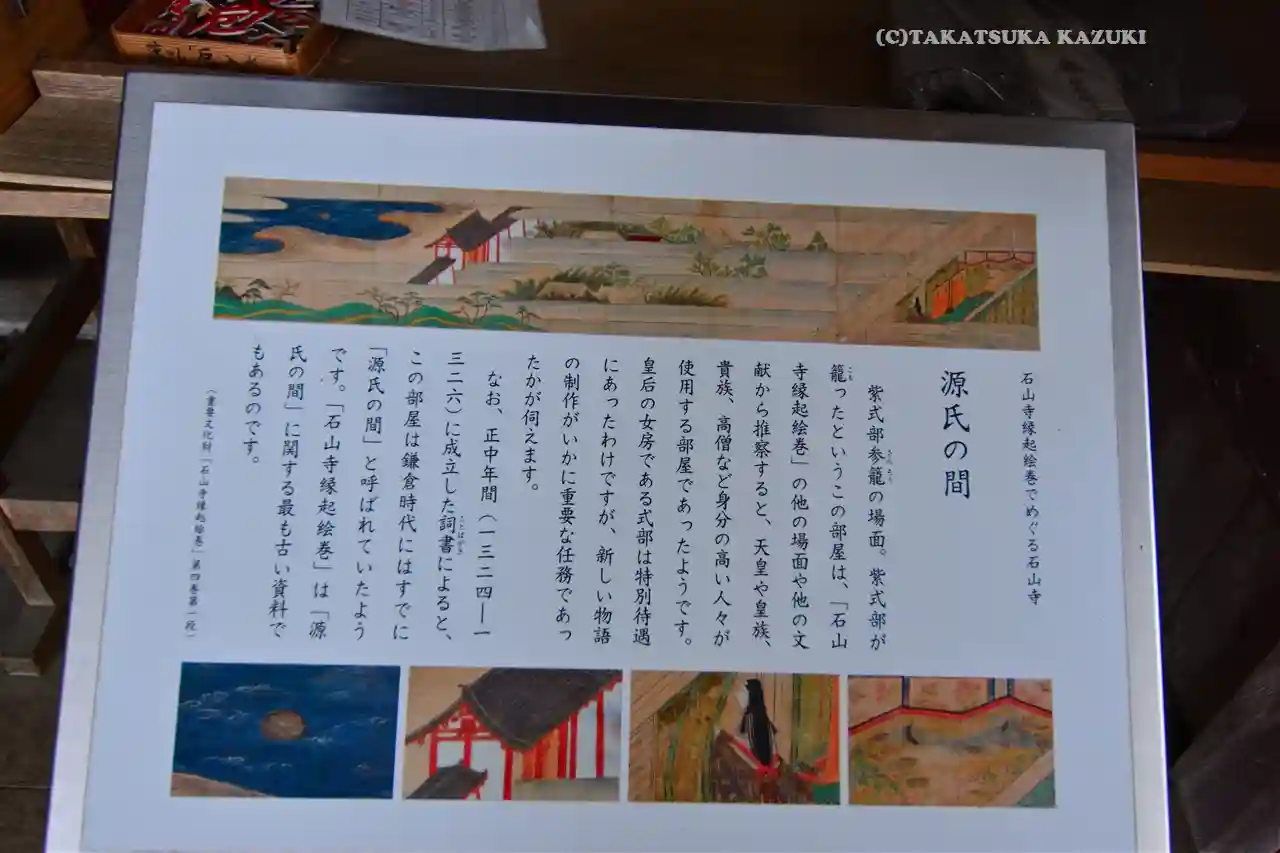 (C)TAKATSUKA KAZUKI
石山寺縁起絵巻でめぐる石山寺
源氏の間
紫式部参籠の場面。紫式部が
さんろう
籠ったというこの部屋は、「石山
こも
寺縁起絵巻」の他の場面や他の文
献から推察すると、天皇や皇族、
貴族、高僧など身分の高い人々が
使用する部屋であったようです。
皇后の女房である式部は特別待遇
にあったわけですが、新しい物語
の制作がいかに重要な任務であっ
たかが伺えます。
なお、正中年間（一三二四―一
三二六）に成立した詞書によると、
ことばがき
この部屋は鎌倉時代にはすでに
「源氏の間」と呼ばれていたよう
です。「石山寺縁起絵巻」は「源
氏の間」に関する最も古い資料で
もあるのです。
（重要文化財「石山寺縁起絵巻」第四巻第一段）